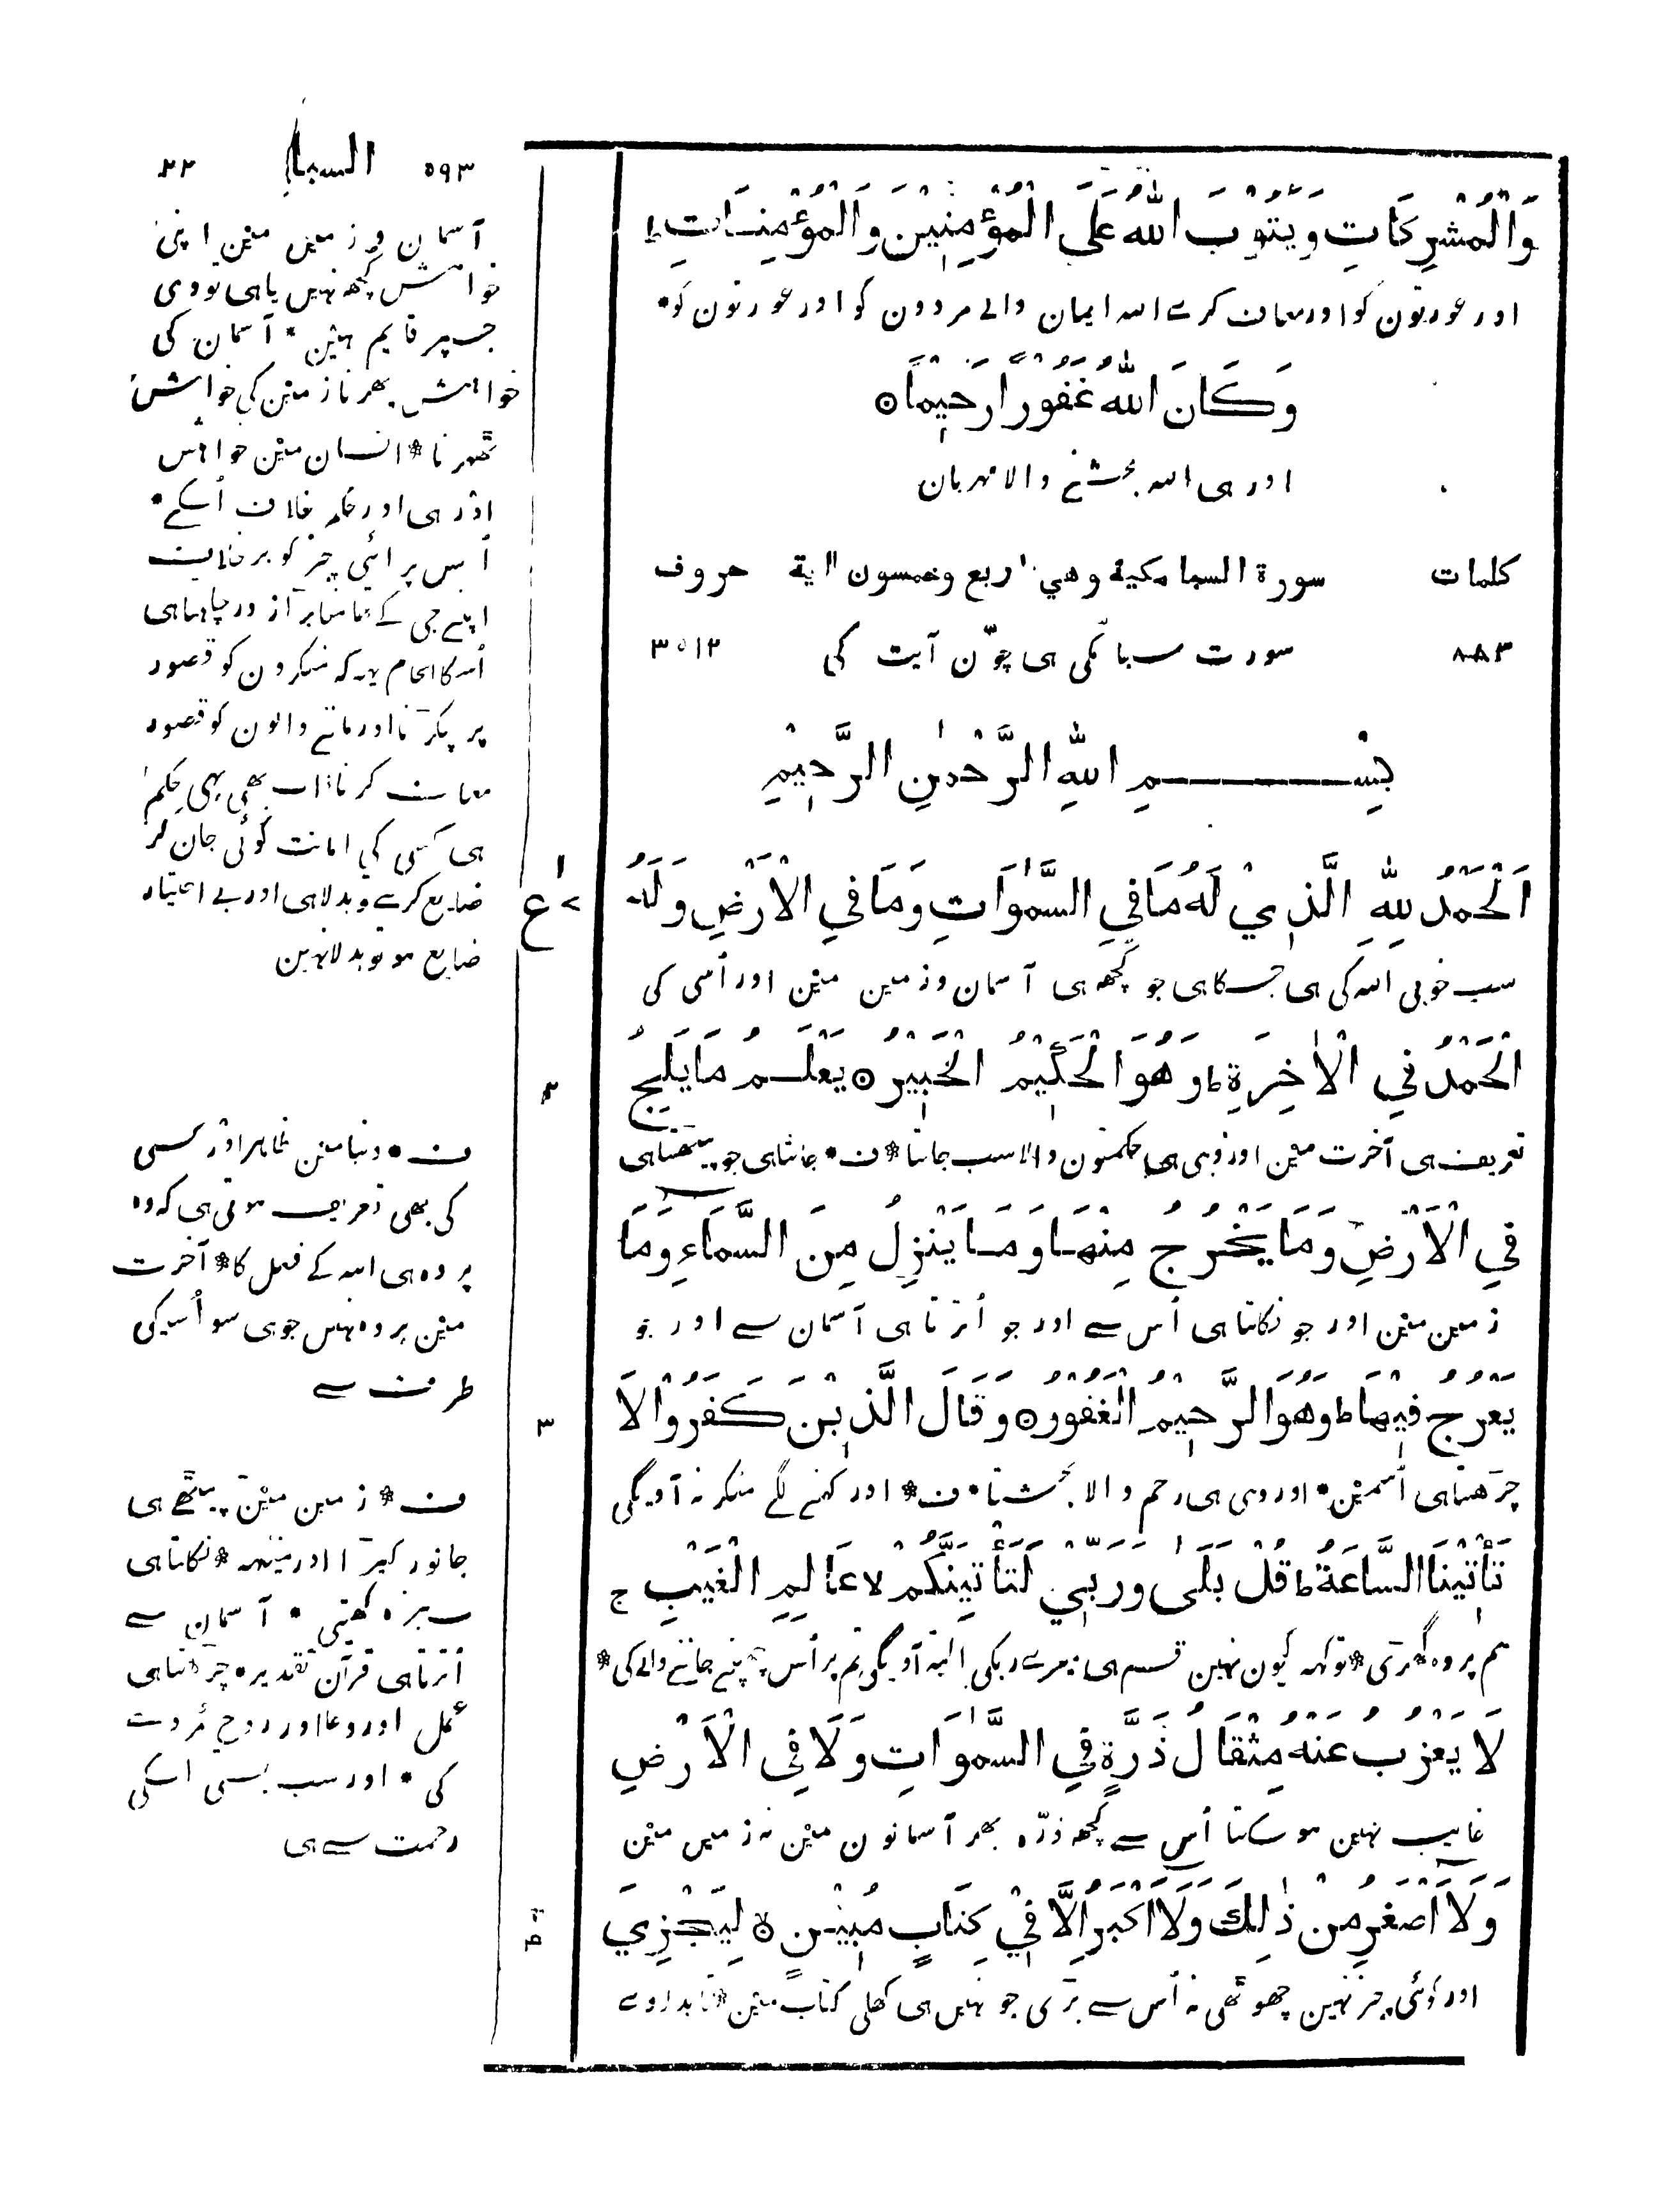 ٥٩٣ السبا ٢٢
وَالْمُشْرِكَاتِ وَيَتُوْبَ اللّٰهُ عَلَى الْمُؤْمِنِيْنَ وَالْمُؤْمِنَاتِ ط
اور عورتون کو اور معاف کرے اللہ ایمان والے مردون کو اور عورتون کو *
وَكَانَ اللّٰهُ غَفُوْرًا رَحِيْمًا ⊙
اور ہی اللہ بخشنے والا مہربان
كلمات سورة السبا مكية وهي اربع وخمسون اية حروف
٨٨٣ سورت سبا مکی ہی چوّن آیت کی ٣٥١٢
بِسْمِ اللّٰهِ الرَّحْمٰنِ الرَّحِيْمِ
اَلْحَمْدُ لِلّٰهِ الَّذِيْ لَهُ مَا فِي السَّمٰوَاتِ وَمَا فِي الْاَرْضِ وَلَهُ
سب خوبی اللہ کی ہی جسکا ہی جو کچھ ہی آسمان و زمین مین اور اُسی کی
الْحَمْدُ فِي الْاٰخِرَةِ ط وَهُوَ الْحَكِيْمُ الْخَبِيْرُ ⊙ يَعْلَمُ مَا يَلِجُ
تعریف ہی آخرت مین اور وہی ہی حکمتون والا سب جانتا * ف * جانتا ہی جو پیٹھتا ہی
فِي الْاَرْضِ وَمَا يَخْرُجُ مِنْهَا وَمَا يَنْزِلُ مِنَ السَّمَاءِ وَمَا
زمین مین اور جو نکلتا ہی اُس سے اور جو اُترتا ہی آسمان سے اور جو
يَعْرُجُ فِيْهَا ط وَهُوَ الرَّحِيْمُ الْغَفُوْرُ ⊙ وَقَالَ الَّذِيْنَ كَفَرُوْا لَا
چڑھتا ہی اُسمین * اور وہی ہی رحم والا بخشتا * ف * اور کہنے لگے منکر نہ آویگی
تَأْتِيْنَا السَّاعَةُ ط قُلْ بَلٰى وَرَبِّيْ لَتَأْتِيَنَّكُمْ لا عَالِمِ الْغَيْبِ ج
ہم پر وہ گھڑی * تو کہہ کیون نہین قسم ہی میرے ربکی البتہ آویگی تم پر اُس چھپے جاننے والے کی *
لَا يَعْزُبُ عَنْهُ مِثْقَالُ ذَرَّةٍ فِي السَّمٰوَاتِ وَلَا فِي الْاَرْضِ
غایب نہین ہو سکتا اُس سے کچھ ذرّہ بھر آسمانون مین نہ زمین مین
وَلَا اَصْغَرُ مِنْ ذٰلِكَ وَلَا اَكْبَرُ اِلَّا فِيْ كِتَابٍ مُبِيْنٍ ⊙ لِيَجْزِيَ
اور کوئی چیز نہین چھوٹی نہ اُس سے بڑی جو نہین ہی کھلی کتاب مین *
ع
٢
٣
آسمان و زمین مین اپنی
خواہش کچھ نہین یا ہی تو وہی
جسپر قایم ہین * آسمان کی
خواہش پھرنا زمین کی خواش
ٹھہرنا * انسان مین خواہش
اور ہی اور حکم خلاف اُسکے *
اُس پرائی چیز کو برخلاف
اپنے جی کے تھامنا بڑا زور چاہتا ہی
اُسکا انجام یہہ کہ منکرون کو قصور
پر پکڑنا اور ماننے والون کو قصور
معاف کرنا اب بھی یہی حکم
ہی کسی کی امانت کوئی جان کر
ضایع کرے تو بدلا ہی اور بے اختیار
ضایع ہو تو بدلا نہین
ف * دنیا مین ظاہر اور کسی
کی بھی تعریف ہوتی ہی کہ وہ
پردہ ہی اللہ کے فعل کا * آخرت
مین پردہ نہین جو ہی سو اُسیکی
طرف سے
ف * زمین مین پیٹھے ہی
جانور کیڑا اور مینہہ * نکلتا ہی
سبزہ کھیتی * آسمان سے
اُترتا ہی قرآن تقدیر * چڑھتا ہی
عمل اور دعا اور روح مُردے
کی * اور سب اسکی
رحمت سے ہی